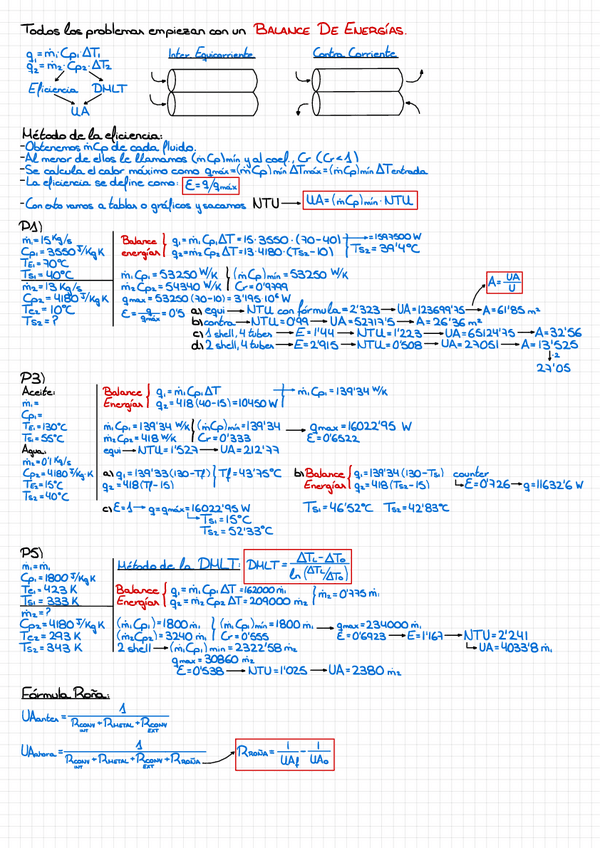 Todos los problemas empiezan con un BALANCE DE ENERGÍAS.
q1 = ṁ1·Cp1·ΔT1
q2 = ṁ2·Cp2·ΔT2
Eficiencia DMLT
UA
Inter Equicorriente
Contra Corriente
Método de la eficiencia:
-Obtenemos ṁCp de cada fluido.
-Al menor de ellos le llamamos (ṁCp)mín y al coef., Cr (Cr<1)
-Se calcula el calor máximo como qmáx=(ṁCp)mín ΔTmáx=(ṁCp)mín ΔTentrada
-La eficiencia se define como: ε=q/qmáx
-Con esto vamos a tablas o gráficos y sacamos NTU → UA=(ṁCp)mín·NTU
P1)
ṁ1=15 Kg/s
Cp1=3550 J/Kg K
TE1=70°C
TS1=40°C
ṁ2=13 Kg/s
Cp2=4180 J/Kg K
TE2=10°C
TS2=?
Balance energías
q1=ṁ1Cp1ΔT=15·3550·(70-40) → =1597500 W
q2=ṁ2Cp2ΔT=13·4180·(TS2-10) TS2=39'4°C
ṁ1Cp1=53250 W/K (ṁCp)mín=53250 W/K
ṁ2Cp2=54340 W/K Cr=0'9799
qmax=53250(70-10)=3'195·10⁶ W
ε=q/qmáx=0'5
A=UA/U
a) equi → NTU con fórmula=2'323 → UA=123699'75 → A=61'85 m²
b) contra → NTU=0'99 → UA=52717'5 → A=26'36 m²
c) 1 shell, 4 tubes → E=1'44 → NTU=1'223 → UA=65124'75 → A=32'56
d) 2 shell, 4 tubes → E=2'915 → NTU=0'508 → UA=27051 → A=13'525
·2
27'05
P3)
Aceite:
ṁ1=
Cp1=
TE1=130°C
TS1=55°C
Agua:
ṁ2=0'1 Kg/s
Cp2=4180 J/Kg·K
TE2=15°C
TS2=40°C
Balance Energías
q1=ṁ1Cp1ΔT → ṁ1Cp1=139'34 W/K
q2=418(40-15)=10450 W
ṁ1Cp1=139'34 W/K (ṁCp)mín=139'34 → qmax=16022'95 W
ṁ2Cp2=418 W/K Cr=0'333 ε=0'6522
equi → NTU=1'527 → UA=212'77
a) q1=139'33(130-Tf) Tf=43'75°C
q2=418(Tf-15)
b) Balance Energías
q1=139'34(130-TS1) counter
q2=418(TS2-15) ε=0'726 → q=11632'6 W
TS1=46'52°C TS2=42'83°C
c) ε=1 → q=qmáx=16022'95 W
TS1=15°C
TS2=52'33°C
P5)
ṁ1=ṁ1
Cp1=1800 J/Kg K
TE1=423 K
TS1=333 K
ṁ2=?
Cp2=4180 J/Kg K
TE2=293 K
TS2=343 K
Método de la DMLT: DMLT=(ΔTL-ΔT0)/ln(ΔTL/ΔT0)
Balance Energías
q1=ṁ1Cp1ΔT=162000ṁ1
q2=ṁ2Cp2ΔT=209000ṁ2
ṁ2=0'775ṁ1
(ṁ1Cp1)=1800ṁ1 (ṁ1Cp1)mín=1800ṁ1 → qmax=234000ṁ1
(ṁ2Cp2)=3240ṁ1 Cr=0'555 ε=0'6923 → E=1'167 → NTU=2'241
UA=4033'8ṁ1
2 shell → (ṁ1Cp1)mín=2322'58ṁ2
qmax=30860ṁ2
ε=0'538 → NTU=1'025 → UA=2380ṁ2
Fórmula Roña:
UAantes=1/(RCONV INT+RMETAL+RCONV EXT)
UAahora=1/(RCONV INT+RMETAL+RCONV EXT+RROÑA) → RROÑA=1/UAf-1/UA0